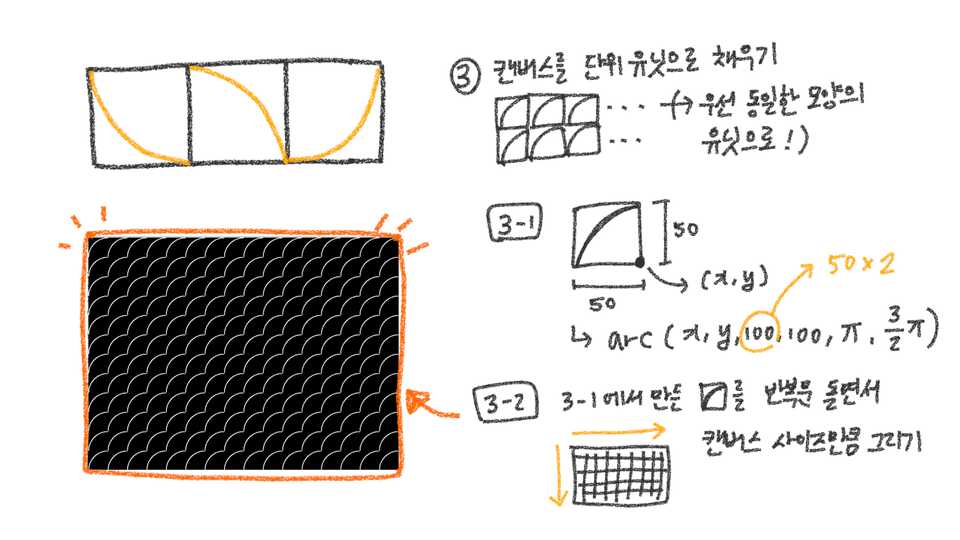 ③ 캔버스를 단위 유닛으로 채우기
... (→ 우선 동일한 모양의
... 유닛으로!)
3-1
50
50
(x,y)
50×2
↳ arc (x, y, 100, 100, π, 3/2 π)
3-2 3-1에서 만든 를 반복문 돌면서
캔버스 사이즈만큼 그리기